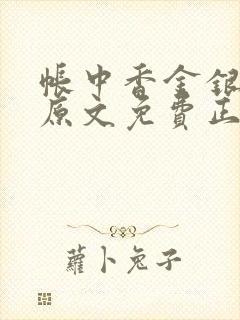 帳中香金銀
原文免費正
蘿卜兔子